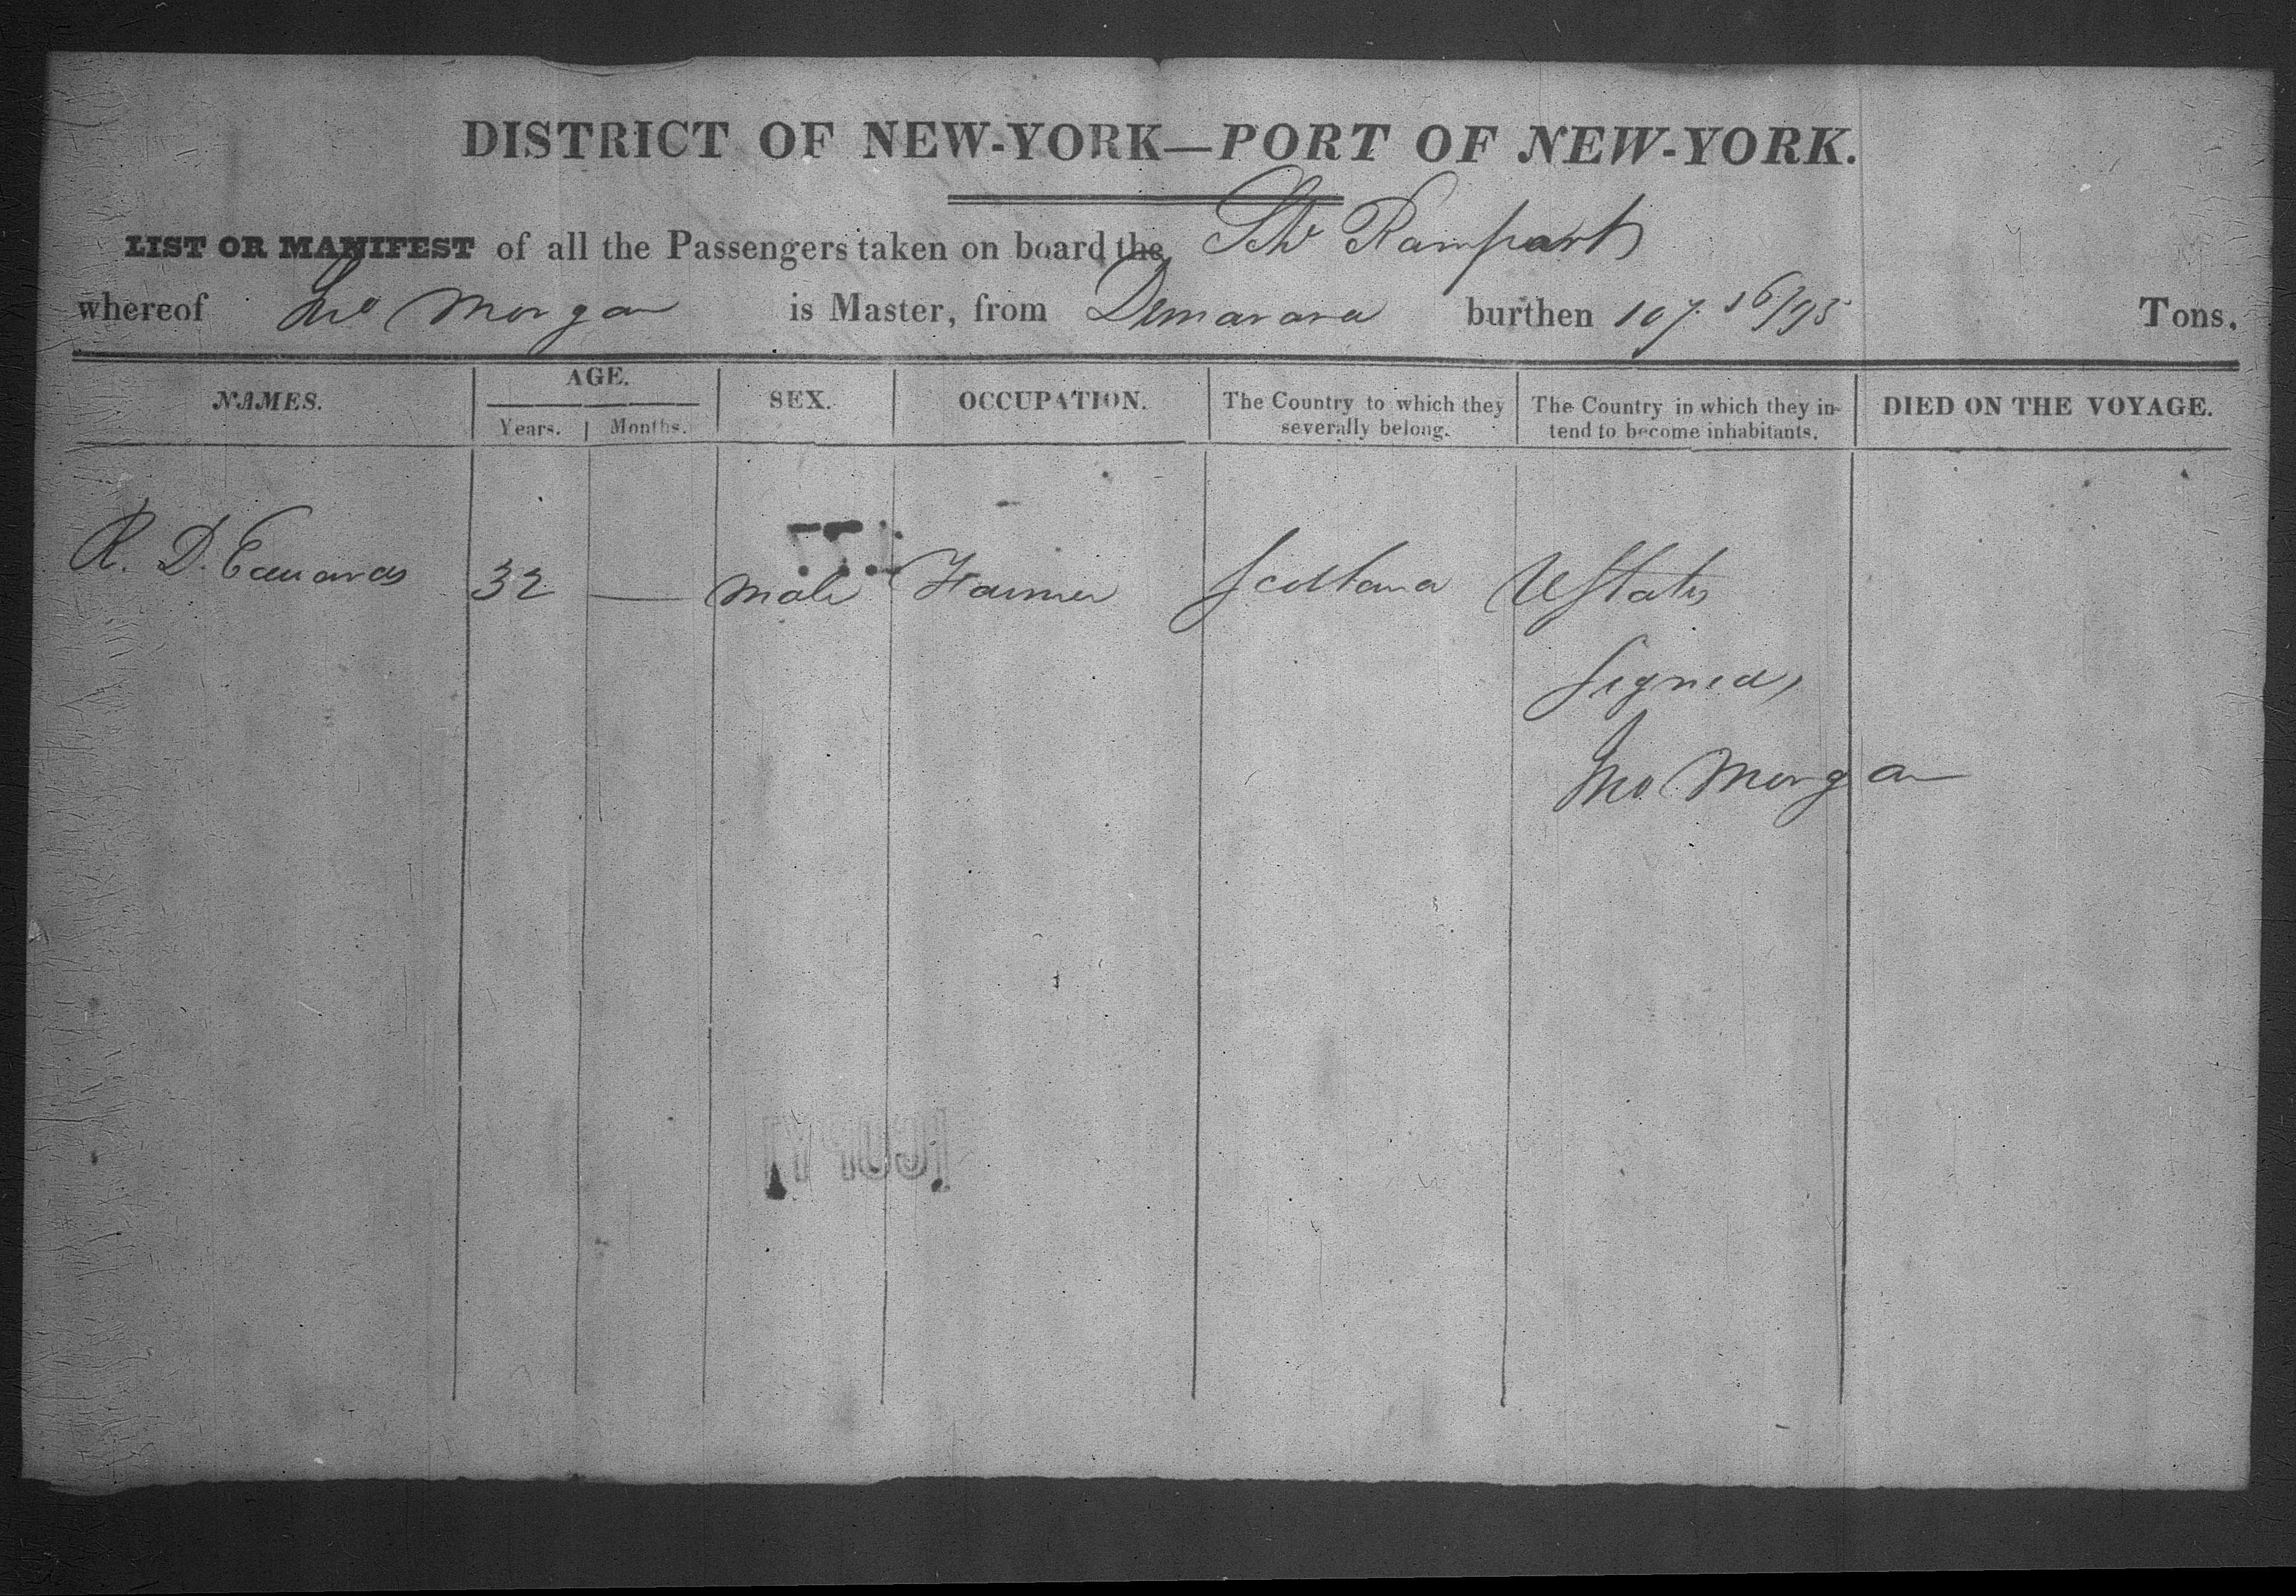 DISTRICT OF NEW-YORK—PORT OF NEW-YORK.
LIST OR MANIFEST of all the Passengers taken on board the Schr Rampart
whereof Jno Morgan is Master, from Demarara burthen 107. 16/95 Tons.
NAMES. AGE. SEX. OCCUPATION. The Country to which they severally belong. The Country in which they in-tend to become inhabitants. DIED ON THE VOYAGE.
Years. Months.
R. D. Edwards 32 — Male Farmer Scotland UStates
Signed,
Jno Morgan